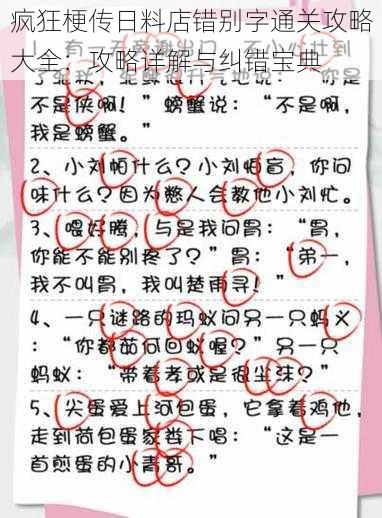 疯狂梗传日料店错别字通关攻略
大全：攻略详解与纠错宝典
1、有一天 谢出门，不小心壮到
气地说：“你是
不是侠啊！”螃蟹说：“不是啊，
我是螃蟹。”
2、小刘帕什么？小刘帕盲，你问
味什么？因为憋人会教他小刘忙。
3、喂好腾，与是我问胃：“胃，
你能不能别疼了？”胃：“弟一，
我不叫胃，我叫楚雨寻！”
4、一只谜路的玛蚁问另一只蚂义
：“你都茄何回蚁喔？”另一只
蚂蚁：“带着孝或是很尘沫？”
5、尖蛋爱上河包蛋，它拿着鸡他，
走到荷包蛋家 下唱：“这是一
首煎蛋的小青哥。”